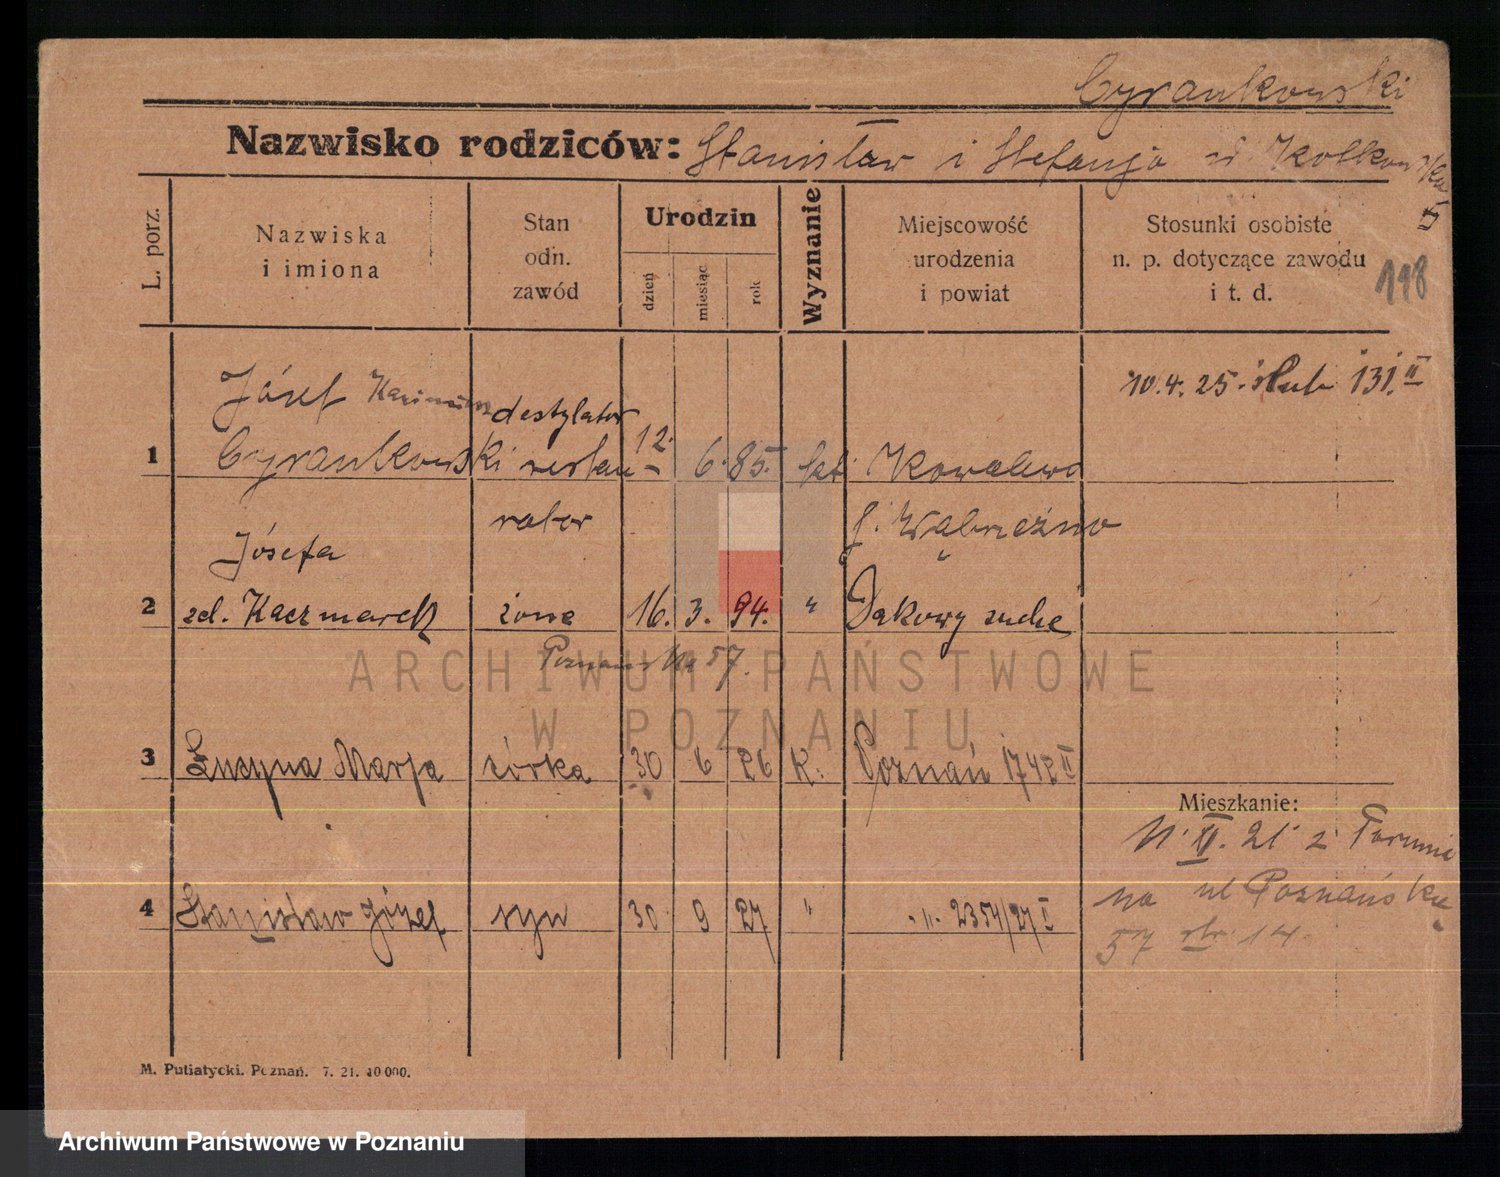 Cyrankowski
Nazwisko rodziców: Stanisław i Stefanja
L. porz.
Nazwiska
i imiona
Stan
odn.
zawód
Urodzin
dzień
miesiąc
rok
Wyznanie
Miejscowość
urodzenia
i powiat
Stosunki osobiste
n. p. dotyczące zawodu
i t. d.
118
10.4.25. ślub 131.II
Józef Kazimierz destylator
1 Cyrankowski restau- 12. 6. 85. kt. Kowalewo
rator
p. Wąbrzeźno
Józefa
2 zd. Kaczmarek żona 16. 3. 94. " Dakowy suche
Poznańska 57.
3 Lucyna Marja córka 30 6 26 K. Poznań 1742 II
Mieszkanie:
11. II. 21 z Torunia
na ul Poznańską
57 str. 14.
4 Stanisław Józef syn 30 9 27 " -"- 2354/27 I
M. Putiatycki. Poznań. 7. 21. 10 000.
ARCHIWUM PAŃSTWOWE
W POZNANIU
Archiwum Państwowe w Poznaniu